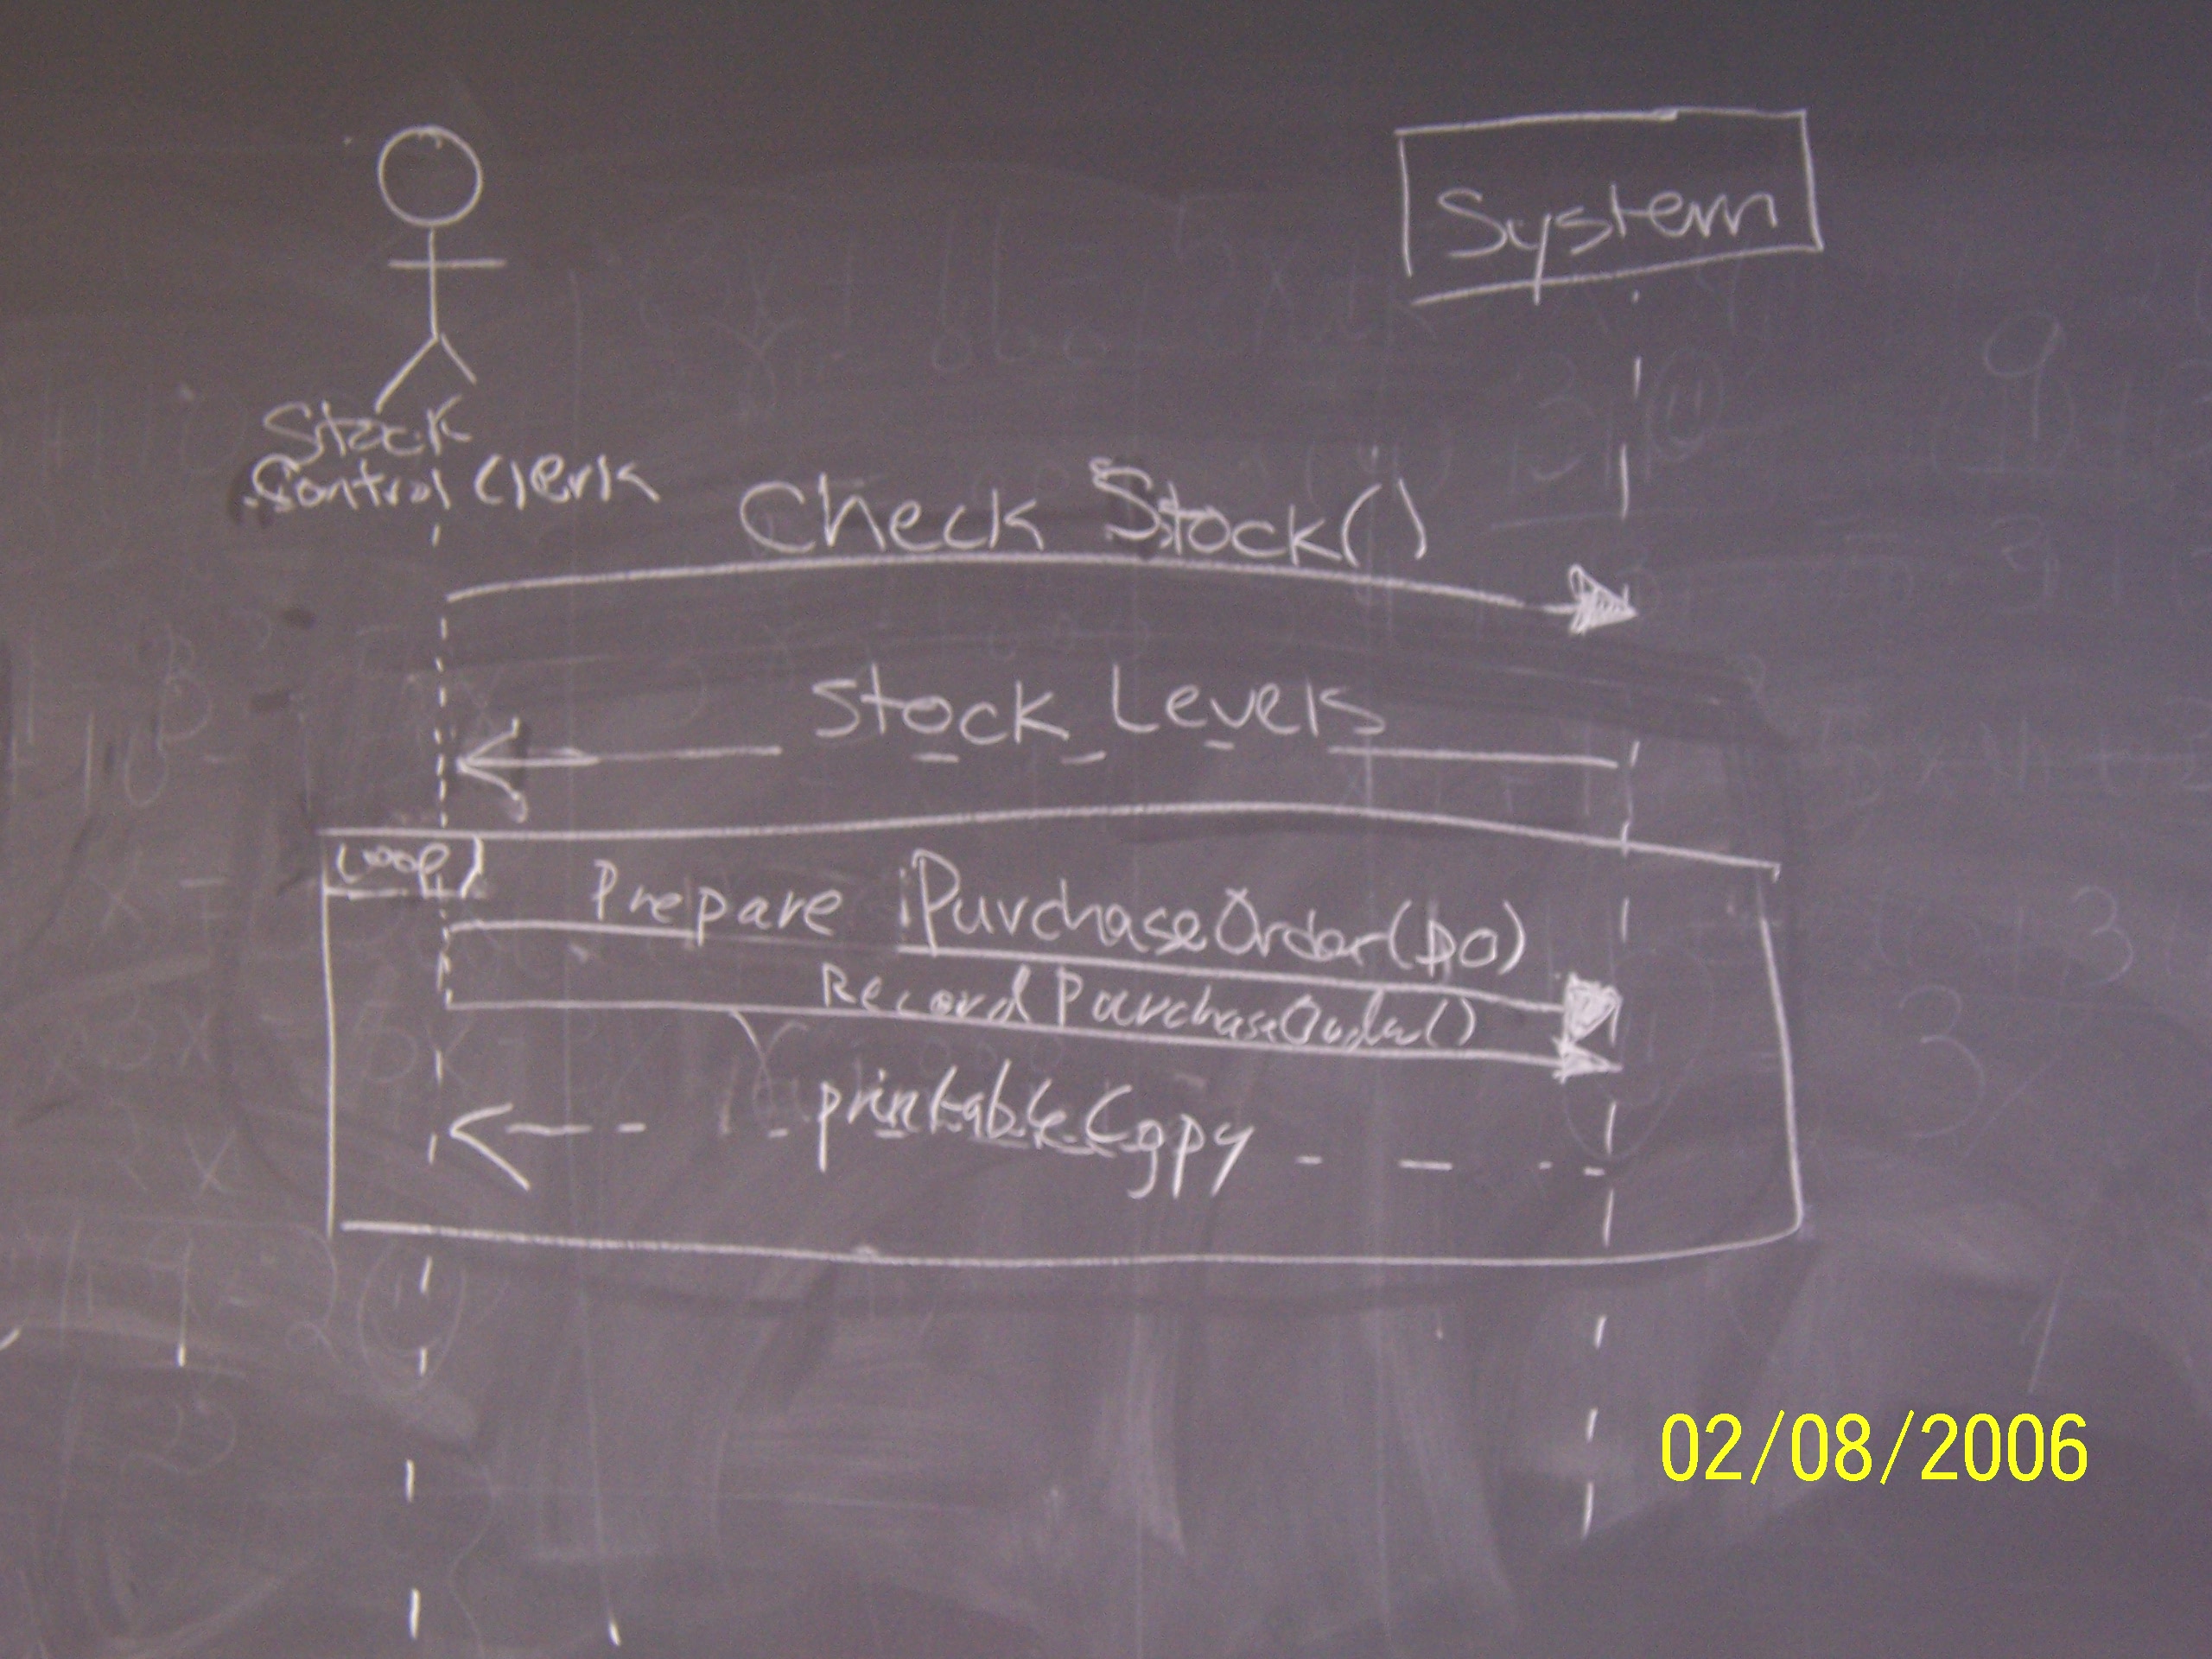 System
Stock
Control Clerk
Check Stock()
Stock Levels
Loop
Prepare PurchaseOrder(PO)
Record PurchaseOrder()
printableCopy
02/08/2006